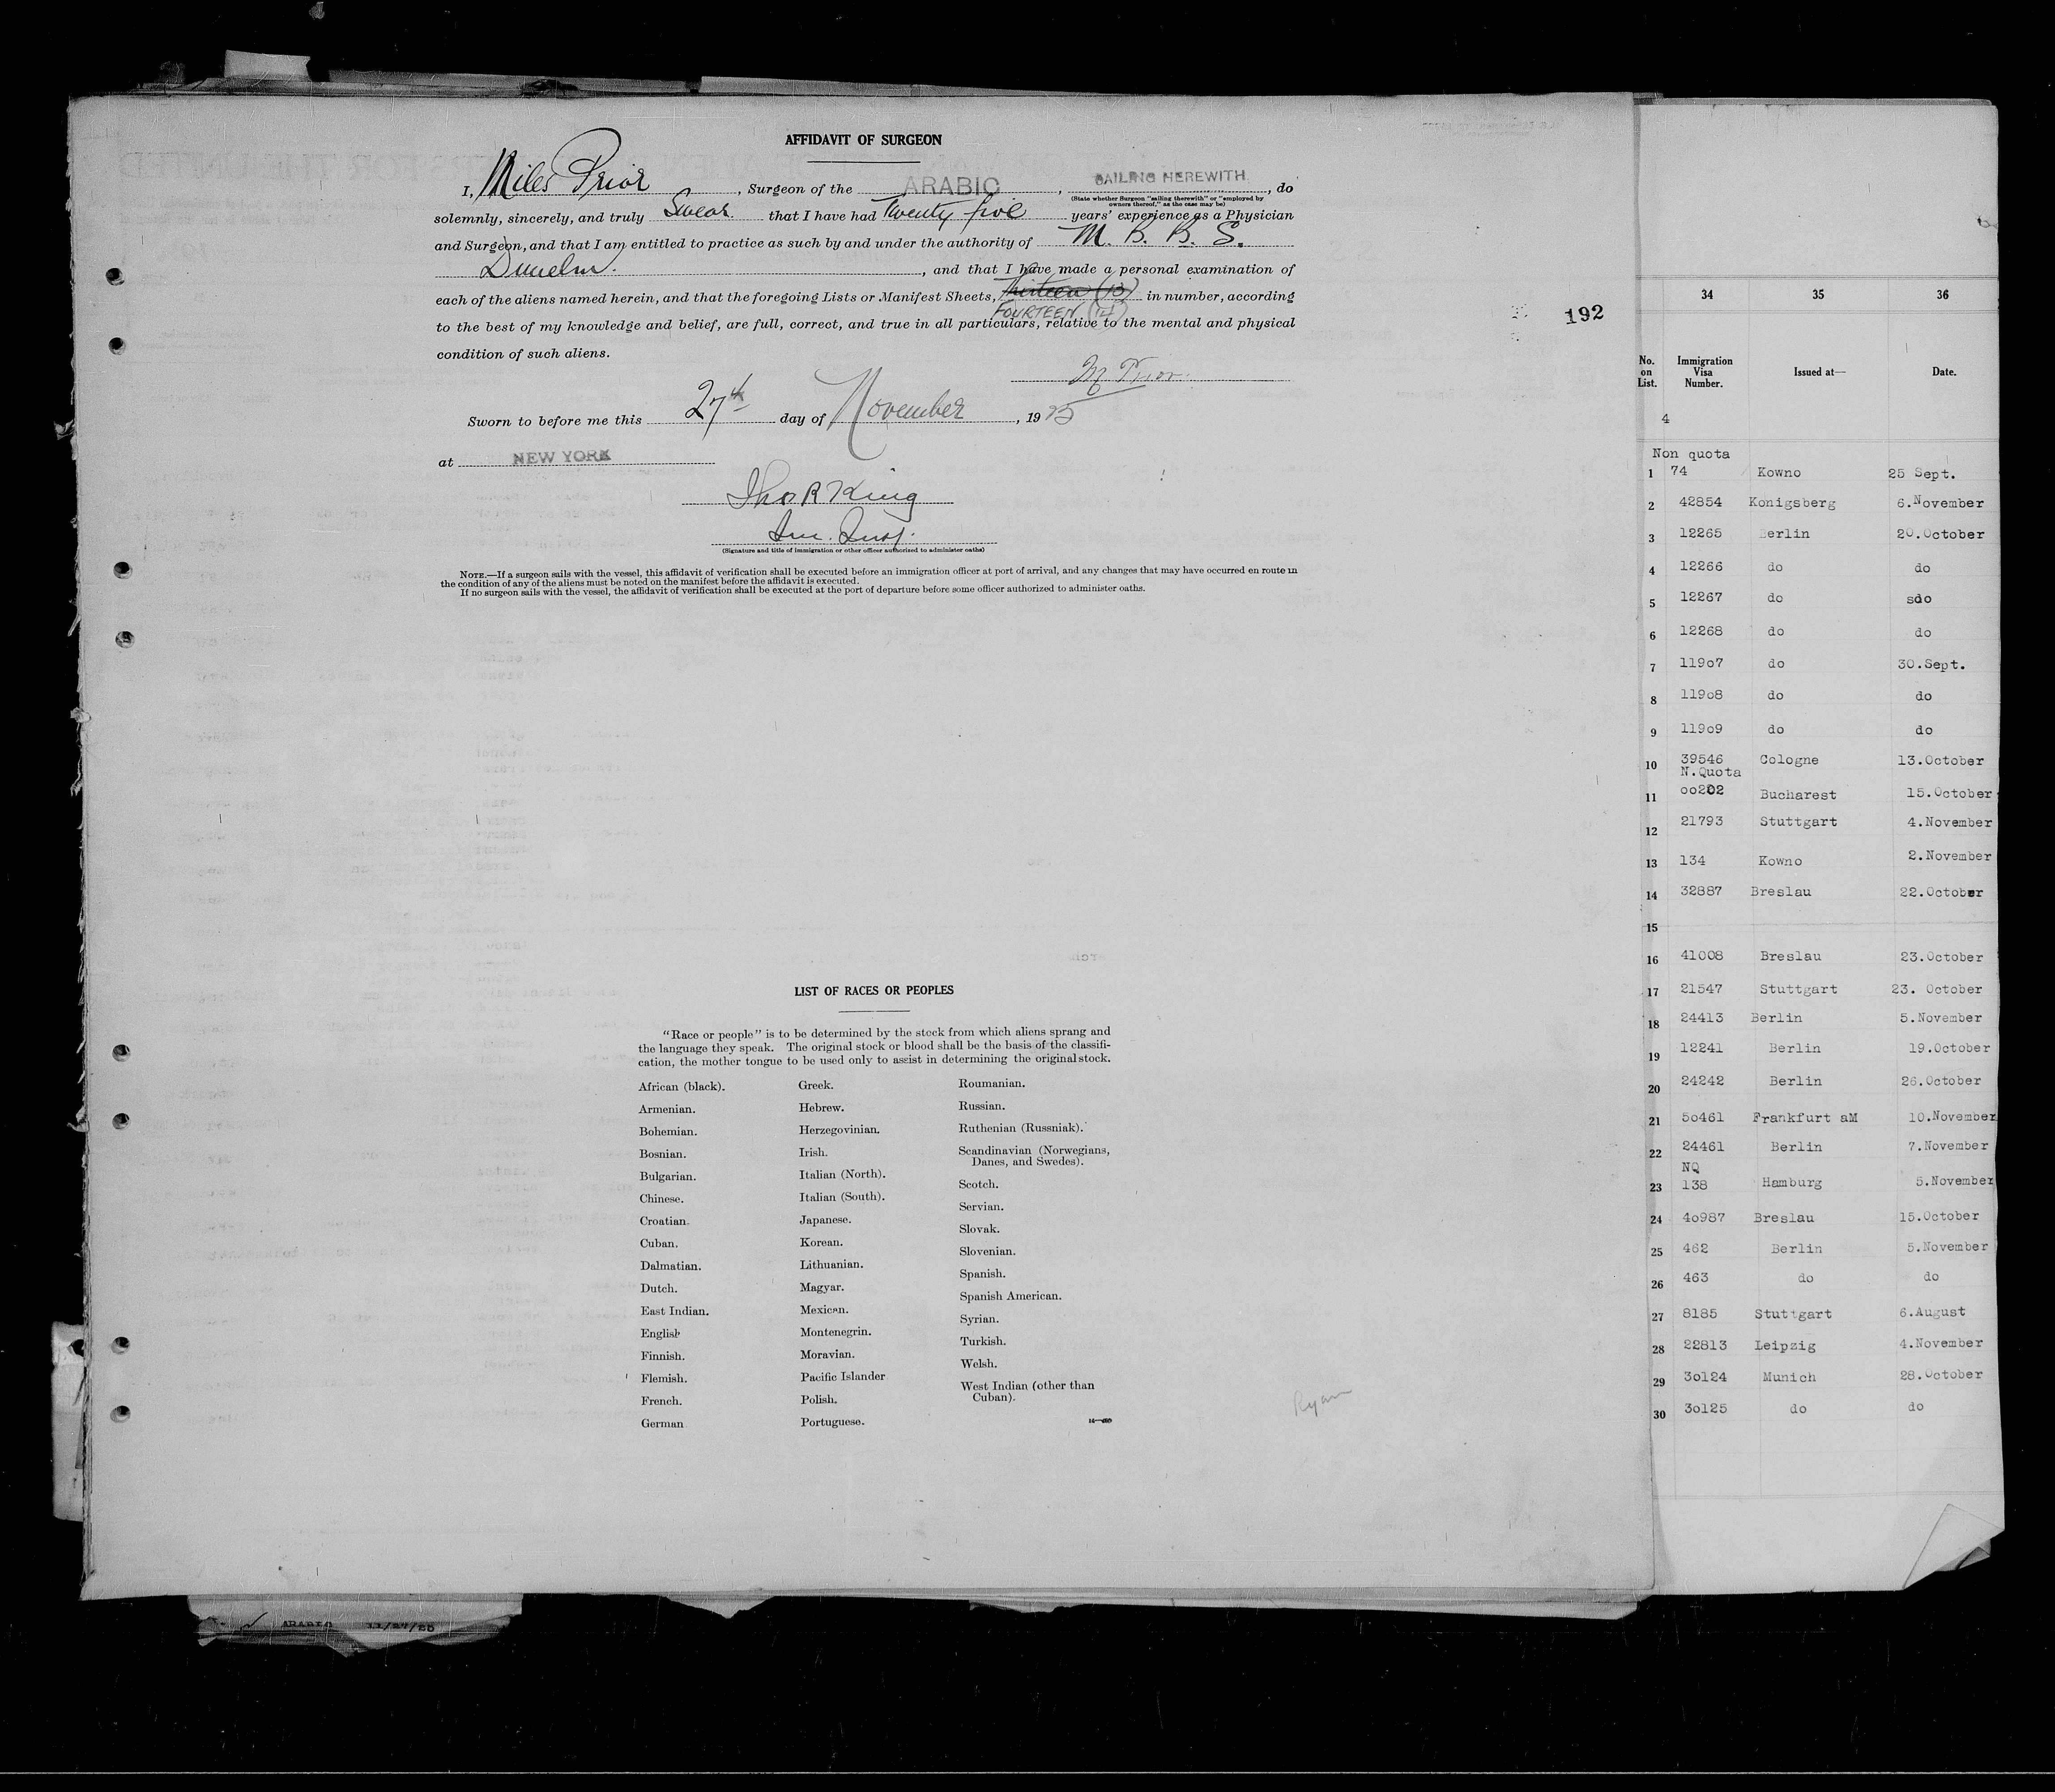 AFFIDAVIT OF SURGEON
I, Miles Prior, Surgeon of the ARABIC, SAILING HEREWITH, do
(State whether Surgeon "sailing therewith" or "employed by
owners thereof," as the case may be)
solemnly, sincerely, and truly Swear. that I have had Twenty five years' experience as a Physician
and Surgeon, and that I am entitled to practice as such by and under the authority of M. B. B. S.
Dunelm., and that I have made a personal examination of
each of the aliens named herein, and that the foregoing Lists or Manifest Sheets, Thirteen (13) in number, according
FOURTEEN (14)
to the best of my knowledge and belief, are full, correct, and true in all particulars, relative to the mental and physical
condition of such aliens.
M Prior
Sworn to before me this 27th day of November, 1925
at NEW YORK
Thos R King
Im. Insp.
(Signature and title of immigration or other officer authorized to administer oaths)
NOTE.—If a surgeon sails with the vessel, this affidavit of verification shall be executed before an immigration officer at port of arrival, and any changes that may have occurred en route in
the condition of any of the aliens must be noted on the manifest before the affidavit is executed.
If no surgeon sails with the vessel, the affidavit of verification shall be executed at the port of departure before some officer authorized to administer oaths.
192
LIST OF RACES OR PEOPLES
"Race or people" is to be determined by the stock from which aliens sprang and
the language they speak. The original stock or blood shall be the basis of the classifi-
cation, the mother tongue to be used only to assist in determining the original stock.
African (black).
Armenian.
Bohemian.
Bosnian.
Bulgarian.
Chinese.
Croatian.
Cuban.
Dalmatian.
Dutch.
East Indian.
English
Finnish.
Flemish.
French.
German
Greek.
Hebrew.
Herzegovinian.
Irish.
Italian (North).
Italian (South).
Japanese.
Korean.
Lithuanian.
Magyar.
Mexican.
Montenegrin.
Moravian.
Pacific Islander
Polish.
Portuguese.
Roumanian.
Russian.
Ruthenian (Russniak).
Scandinavian (Norwegians,
Danes, and Swedes).
Scotch.
Servian.
Slovak.
Slovenian.
Spanish.
Spanish American.
Syrian.
Turkish.
Welsh.
West Indian (other than
Cuban).
Ryan
ARABIC 11/27/25
34 35 36
No. on List. Immigration Visa Number. Issued at— Date.
4
Non quota
1 74 Kowno 25 Sept.
2 42854 Konigsberg 6.November
3 12265 Berlin 20.October
4 12266 do do
5 12267 do sdo
6 12268 do do
7 11907 do 30.Sept.
8 11908 do do
9 11909 do do
10 39546 Cologne 13.October
N.Quota
11 00202 Bucharest 15.October
12 21793 Stuttgart 4.November
13 134 Kowno 2.November
14 32887 Breslau 22.October
15
16 41008 Breslau 23.October
17 21547 Stuttgart 23. October
18 24413 Berlin 5.November
19 12241 Berlin 19.October
20 24242 Berlin 26.October
21 50461 Frankfurt aM 10.November
22 24461 Berlin 7.November
NQ
23 138 Hamburg 5.November
24 40987 Breslau 15.October
25 462 Berlin 5.November
26 463 do do
27 8185 Stuttgart 6.August
28 22813 Leipzig 4.November
29 30124 Munich 28.October
30 30125 do do